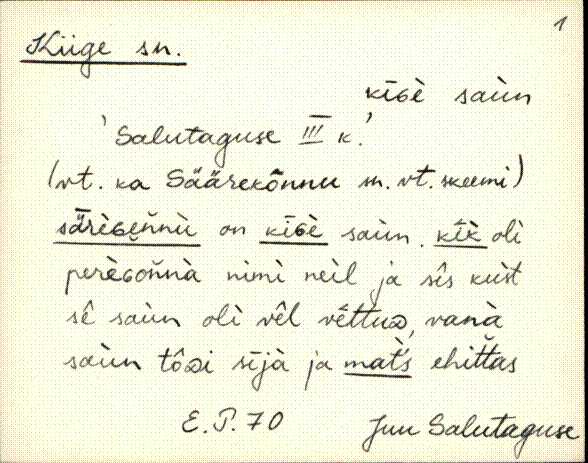 1
Kiige sn.
kīɢè saùn
'Salutaguse III k.'
(vt. ka Säärekõnnu sn. vt. skeemi)
sǟrèɢen̆nù on kīɢè saùn. kîk oli
perèɢon̆nà nimì neìl ja sîs kust
sê saùn olì vêl vêttuᴅ, vanà
saùn tôᴅi sījà ja mat̀s ehit̆tas
E.P. 70 Juu Salutaguse